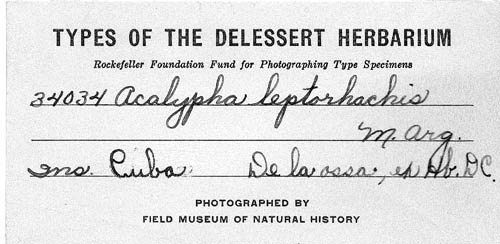 TYPES OF THE DELESSERT HERBARIUM
Rockefeller Foundation Fund for Photographing Type Specimens
34034 Acalypha leptorhachis
M. Arg.
Ins. Cuba De la ossa, ex Hb. DC.
PHOTOGRAPHED BY
FIELD MUSEUM OF NATURAL HISTORY